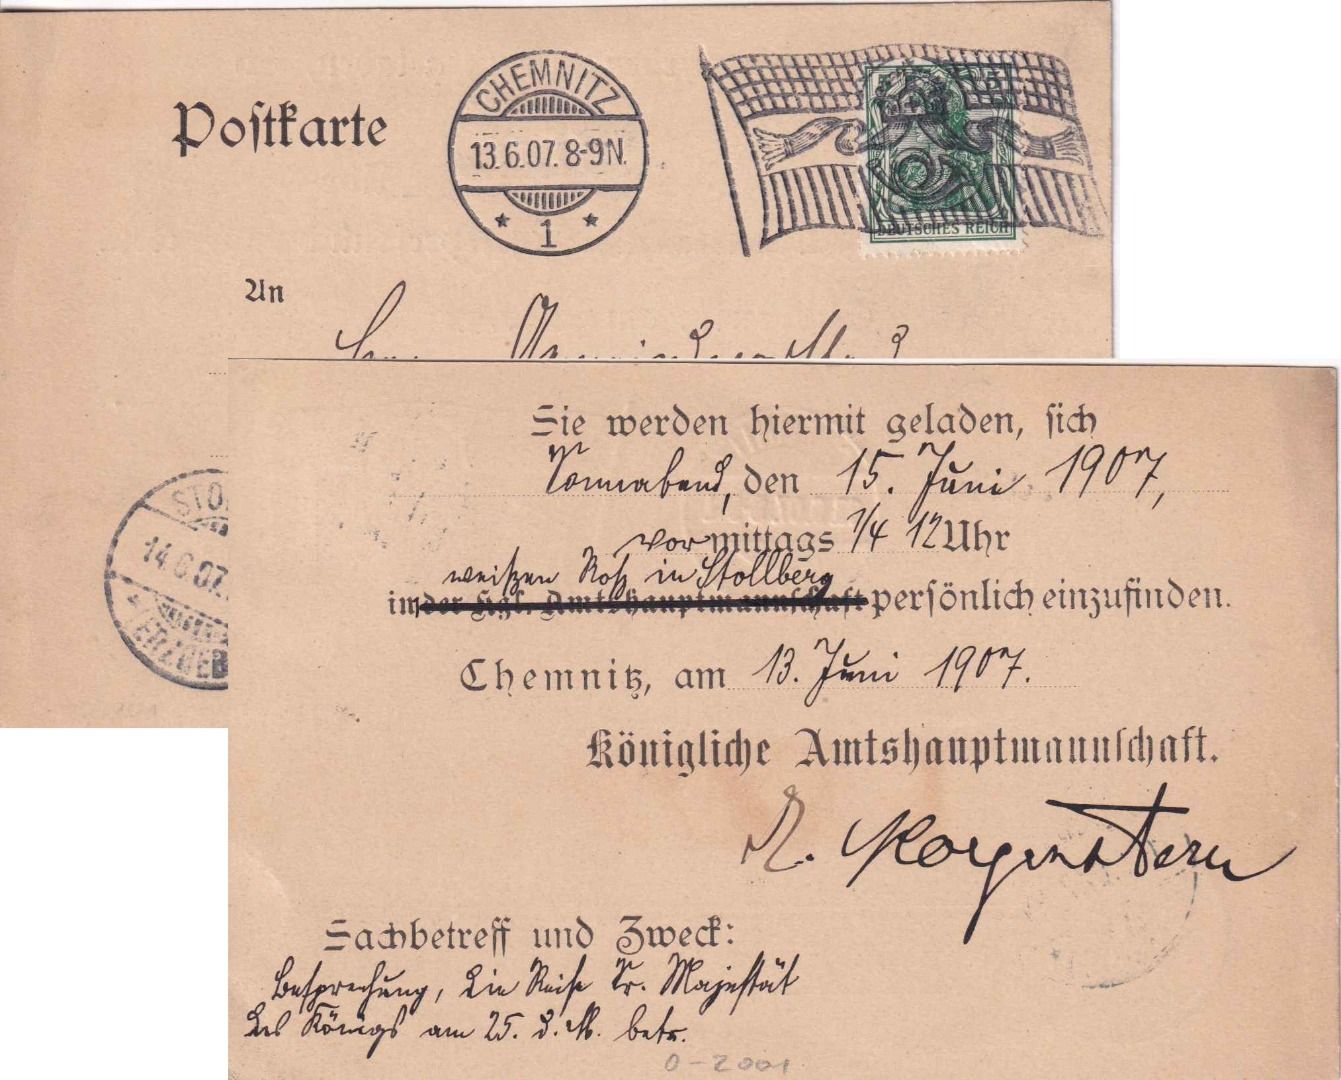 Postkarte
CHEMNITZ
13.6.07. 8-9N.
* 1 *
5 5
DEUTSCHES REICH
An
Herrn Gemeindevorstand
STO
14.6.07.
* ERZGEB
Sie werden hiermit geladen, sich
Sonnabend, den 15. Juni 1907,
vormittags 1/4 12 Uhr
weißen Roß in Stollberg
im der Kgl. Amtshauptmannschaft persönlich einzufinden.
Chemnitz, am 13. Juni 1907.
Königliche Amtshauptmannschaft.
Morgenstern
Sachbetreff und Zweck:
Besprechung, die Reise Sr. Majestät
des Königs am 25. d. M. betr.
0-2001